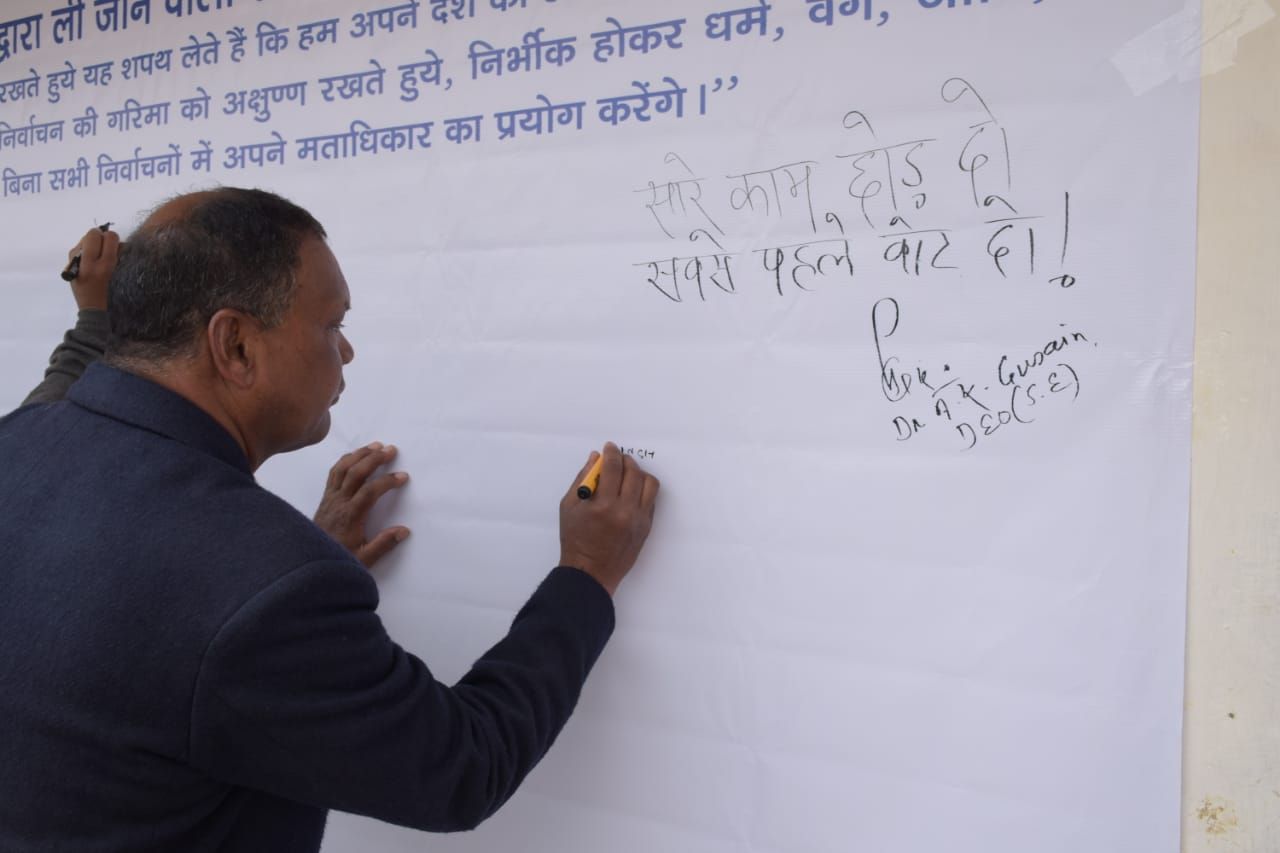 द्वारा ली जाने वाली
रखते हुये यह शपथ लेते हैं कि हम अपने देश की
निर्वाचन की गरिमा को अक्षुण्ण रखते हुये, निर्भीक होकर धर्म, वर्ग,
बिना सभी निर्वाचनों में अपने मताधिकार का प्रयोग करेंगे।”
सारे काम छोड़ दो
सबसे पहले वोट दो!
Dr A.K. Gusain.
DEO(S.E)